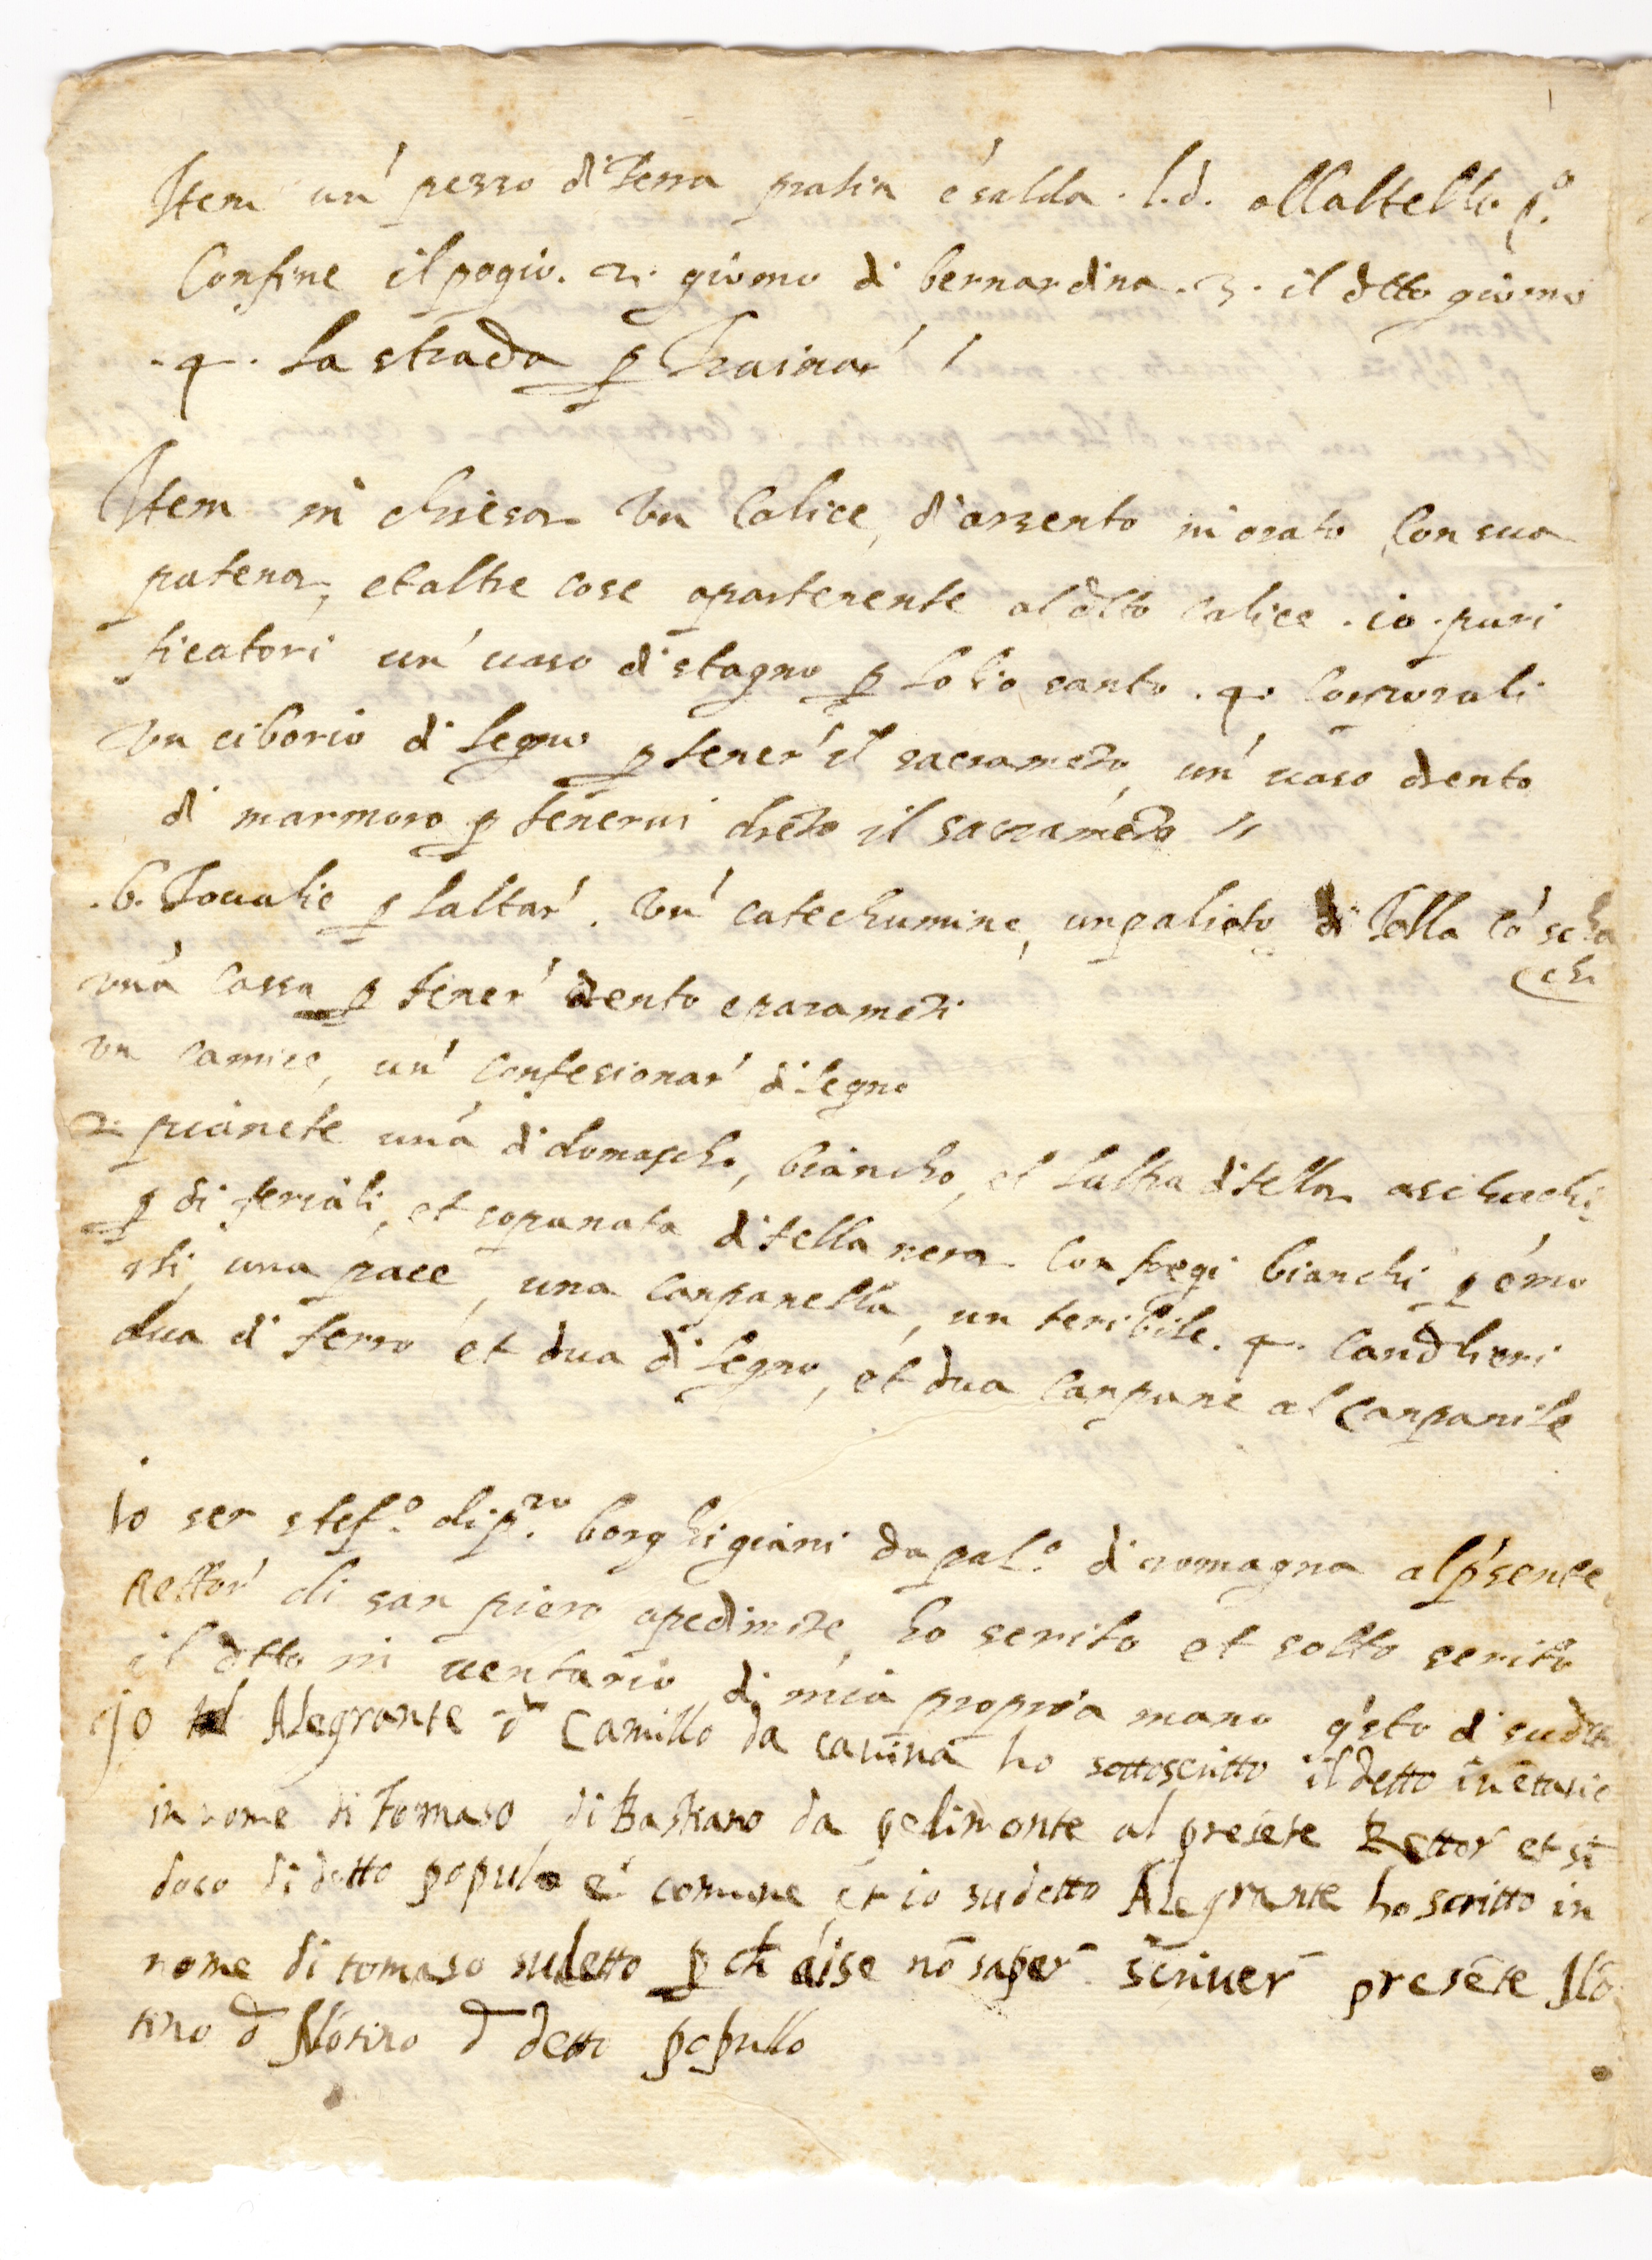 Item un' pezzo di terra pratia e salda . l. d. allaltello p.º
Confine il pogio . 2. giomo di bernardina . 3. il dtto giomo
. 4 . la strada p trainar' /
Item in chiesa un Calice, d'arzento in orato, Con sua
patena, et altre cose apartenente al dtto calice . io . puri
ficatori un' uaso di stagno p lolio santo . 4. Corporali
Un ciborio di legno p tener' il sacrameto, un' uaso drento
di marmoro p tenerui dreto il sacrameto //
. 6. Toualie p laltar' . Un' catechumine, un palioto di Tella co' scha
chi
una cassa p tener' drento e parameti
un camice, un' Confesionar' di legno
2. pianete una di domascho, biancho, et laltra di tella a schachi
p di feriali, et sopanata di tella nera Con fregi bianchi p e mo
rti, una pace, una Canpanella, un teribile . 4. Candlieri
dua di ferro et dua di legno, et dua canpane al Canpanile
Io ser stef.º di p.ro borghigiani da pal.º di romagna al p'sente
Rettor' di san piero a pedimote, ho scrito et sotto scrito
il dtto in uentario di mia propria mano q'sto di sud.to
Jo Alegrante d Camillo da cauina ho sottoscritto il detto inētario
in nome di Tomaso di Bastiano da pedimonte al presēte Rettor et sī
daco di detto populo e comune et io sudetto Alegrante ho scritto in
nome di tomaso sudetto p ch disse nō saper scriuer presēte Flō
rino d Flōrino d detto popullo